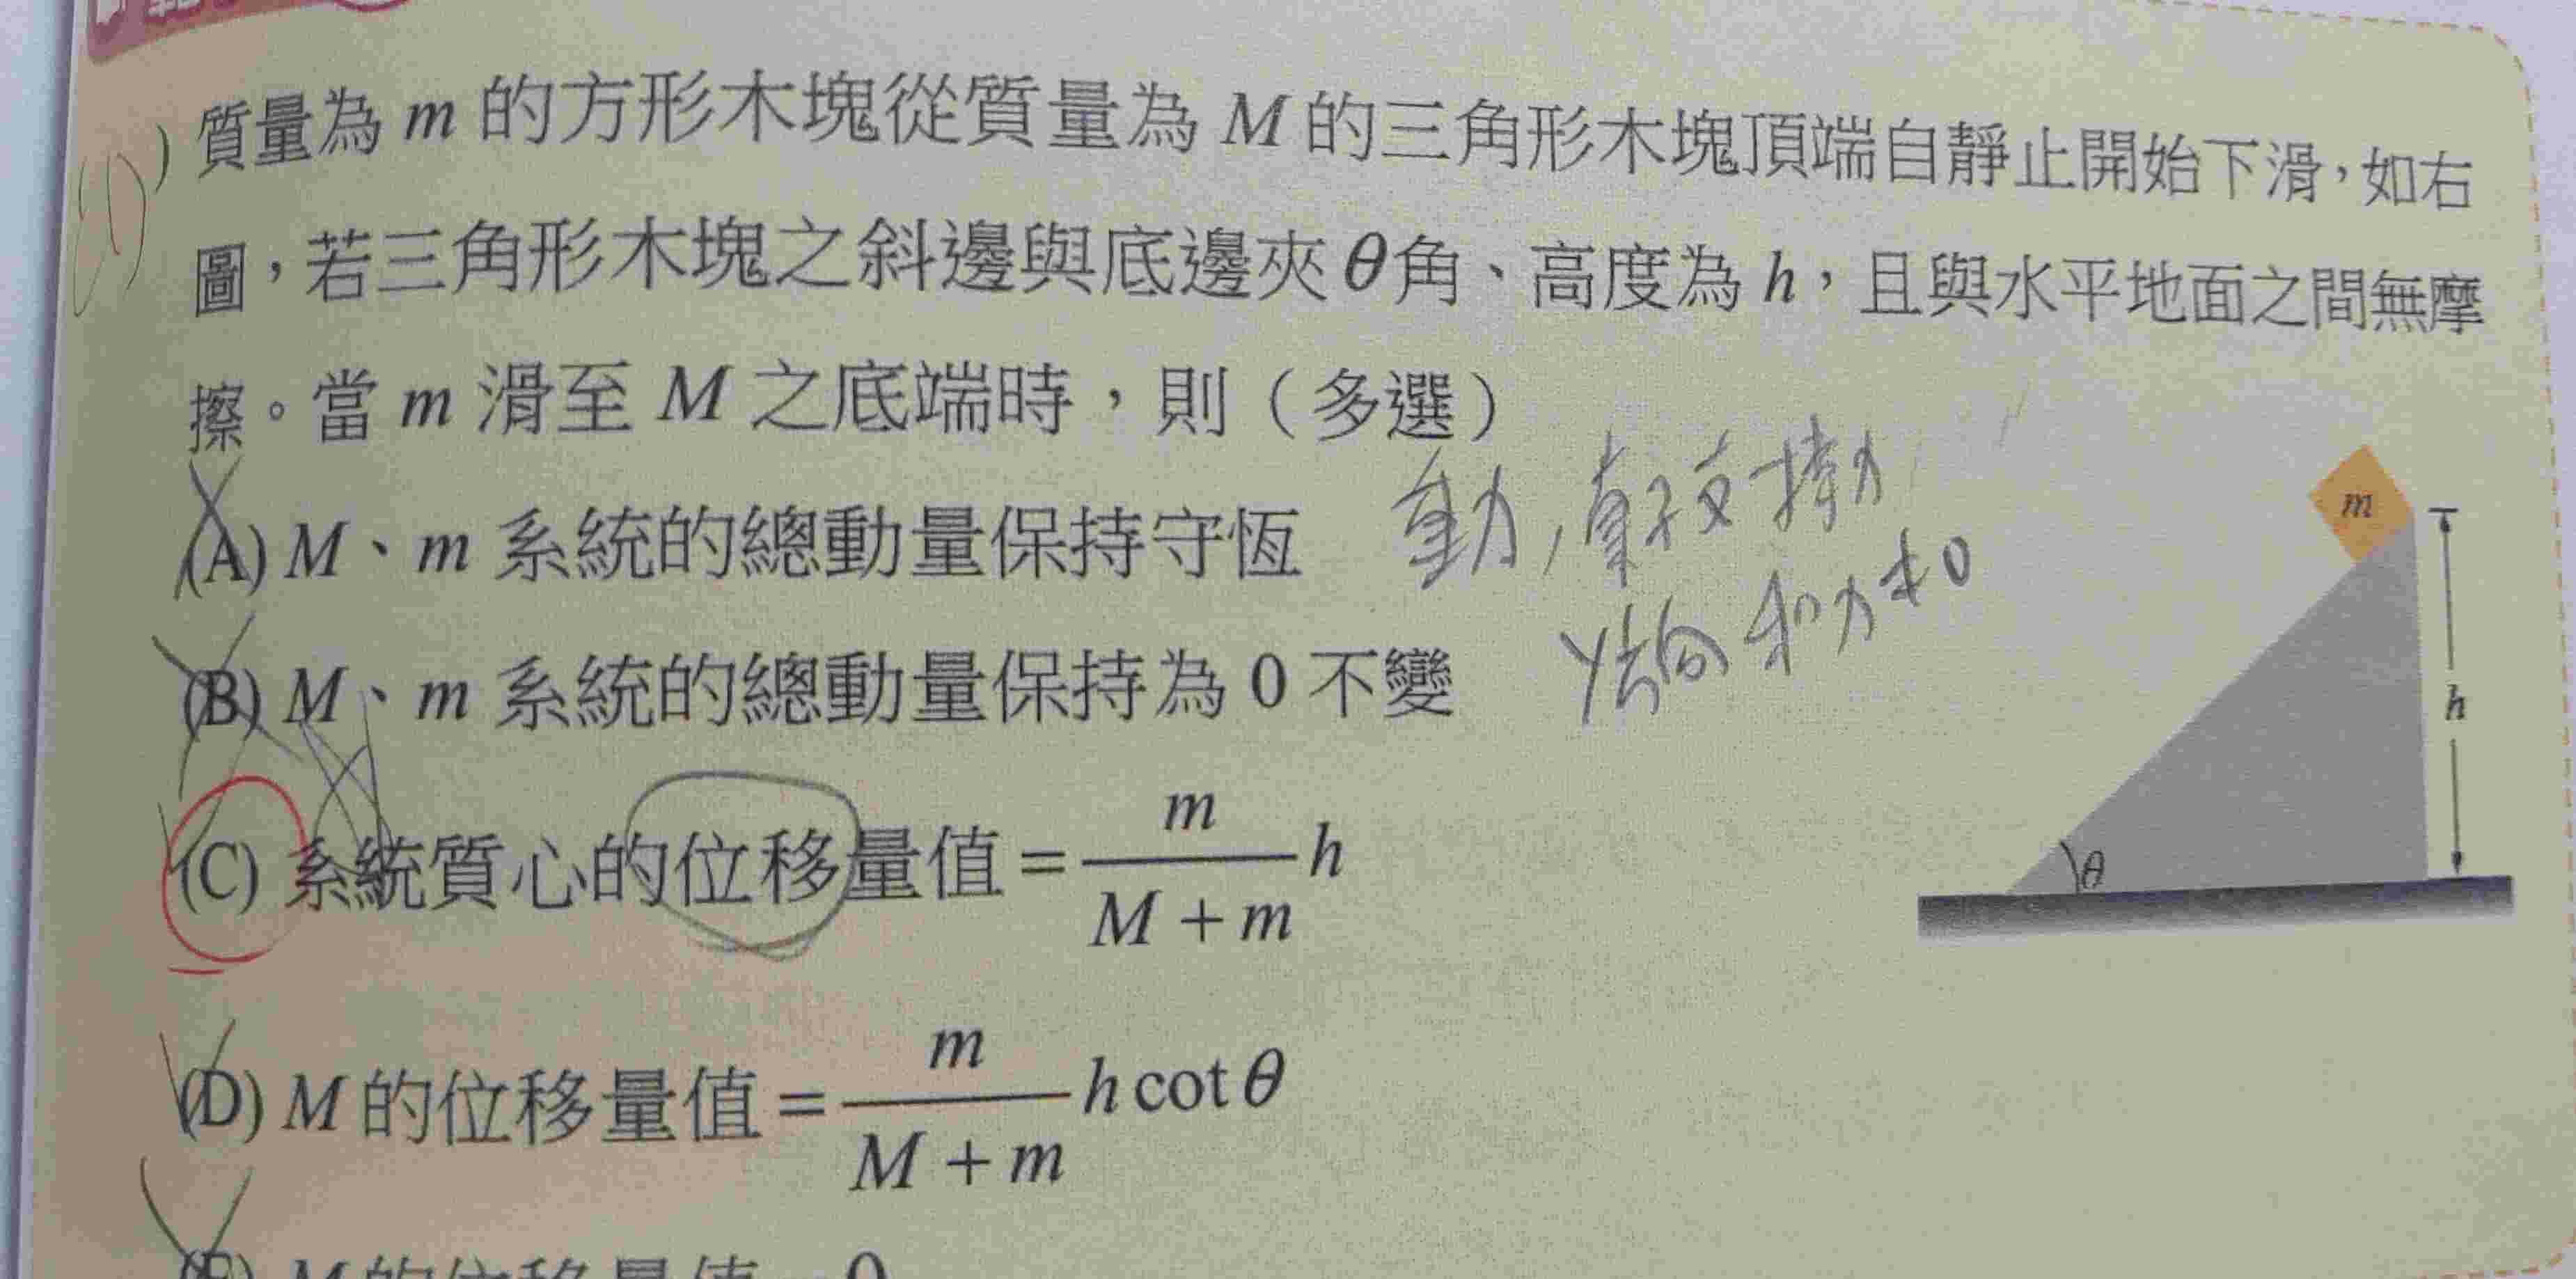 ) 質量為 m 的方形木塊從質量為 M 的三角形木塊頂端自靜止開始下滑，如右
圖，若三角形木塊之斜邊與底邊夾 θ 角、高度為 h，且與水平地面之間無摩
擦。當 m 滑至 M 之底端時，則（多選）
(A) M、m 系統的總動量保持守恆
(B) M、m 系統的總動量保持為 0 不變
y方向和力≠0
(C) 系統質心的位移量值 = m/(M + m) h
(D) M 的位移量值 = m/(M + m) h cot θ
m
h
θ